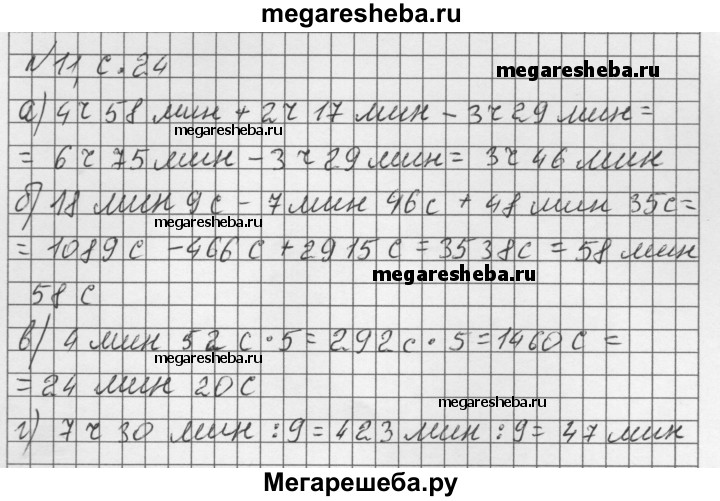 megaresheba.ru
№11, с. 24
megaresheba.ru
а) 4ч 58 мин + 2ч 17 мин - 3ч 29 мин =
megaresheba.ru
= 6ч 75 мин - 3ч 29 мин = 3ч 46 мин
б) 18 мин 9с - 7 мин 46с + 48 мин 35с =
megaresheba.ru
= 1089с - 466с + 2915с = 3538с = 58 мин
megaresheba.ru
58 с
в) 4 мин 52с · 5 = 292с · 5 = 1460с =
megaresheba.ru
= 24 мин 20с
megaresheba.ru
г) 7ч 30 мин : 9 = 423 мин : 9 = 47 мин
megaresheba.ru
Мегарешеба.ру